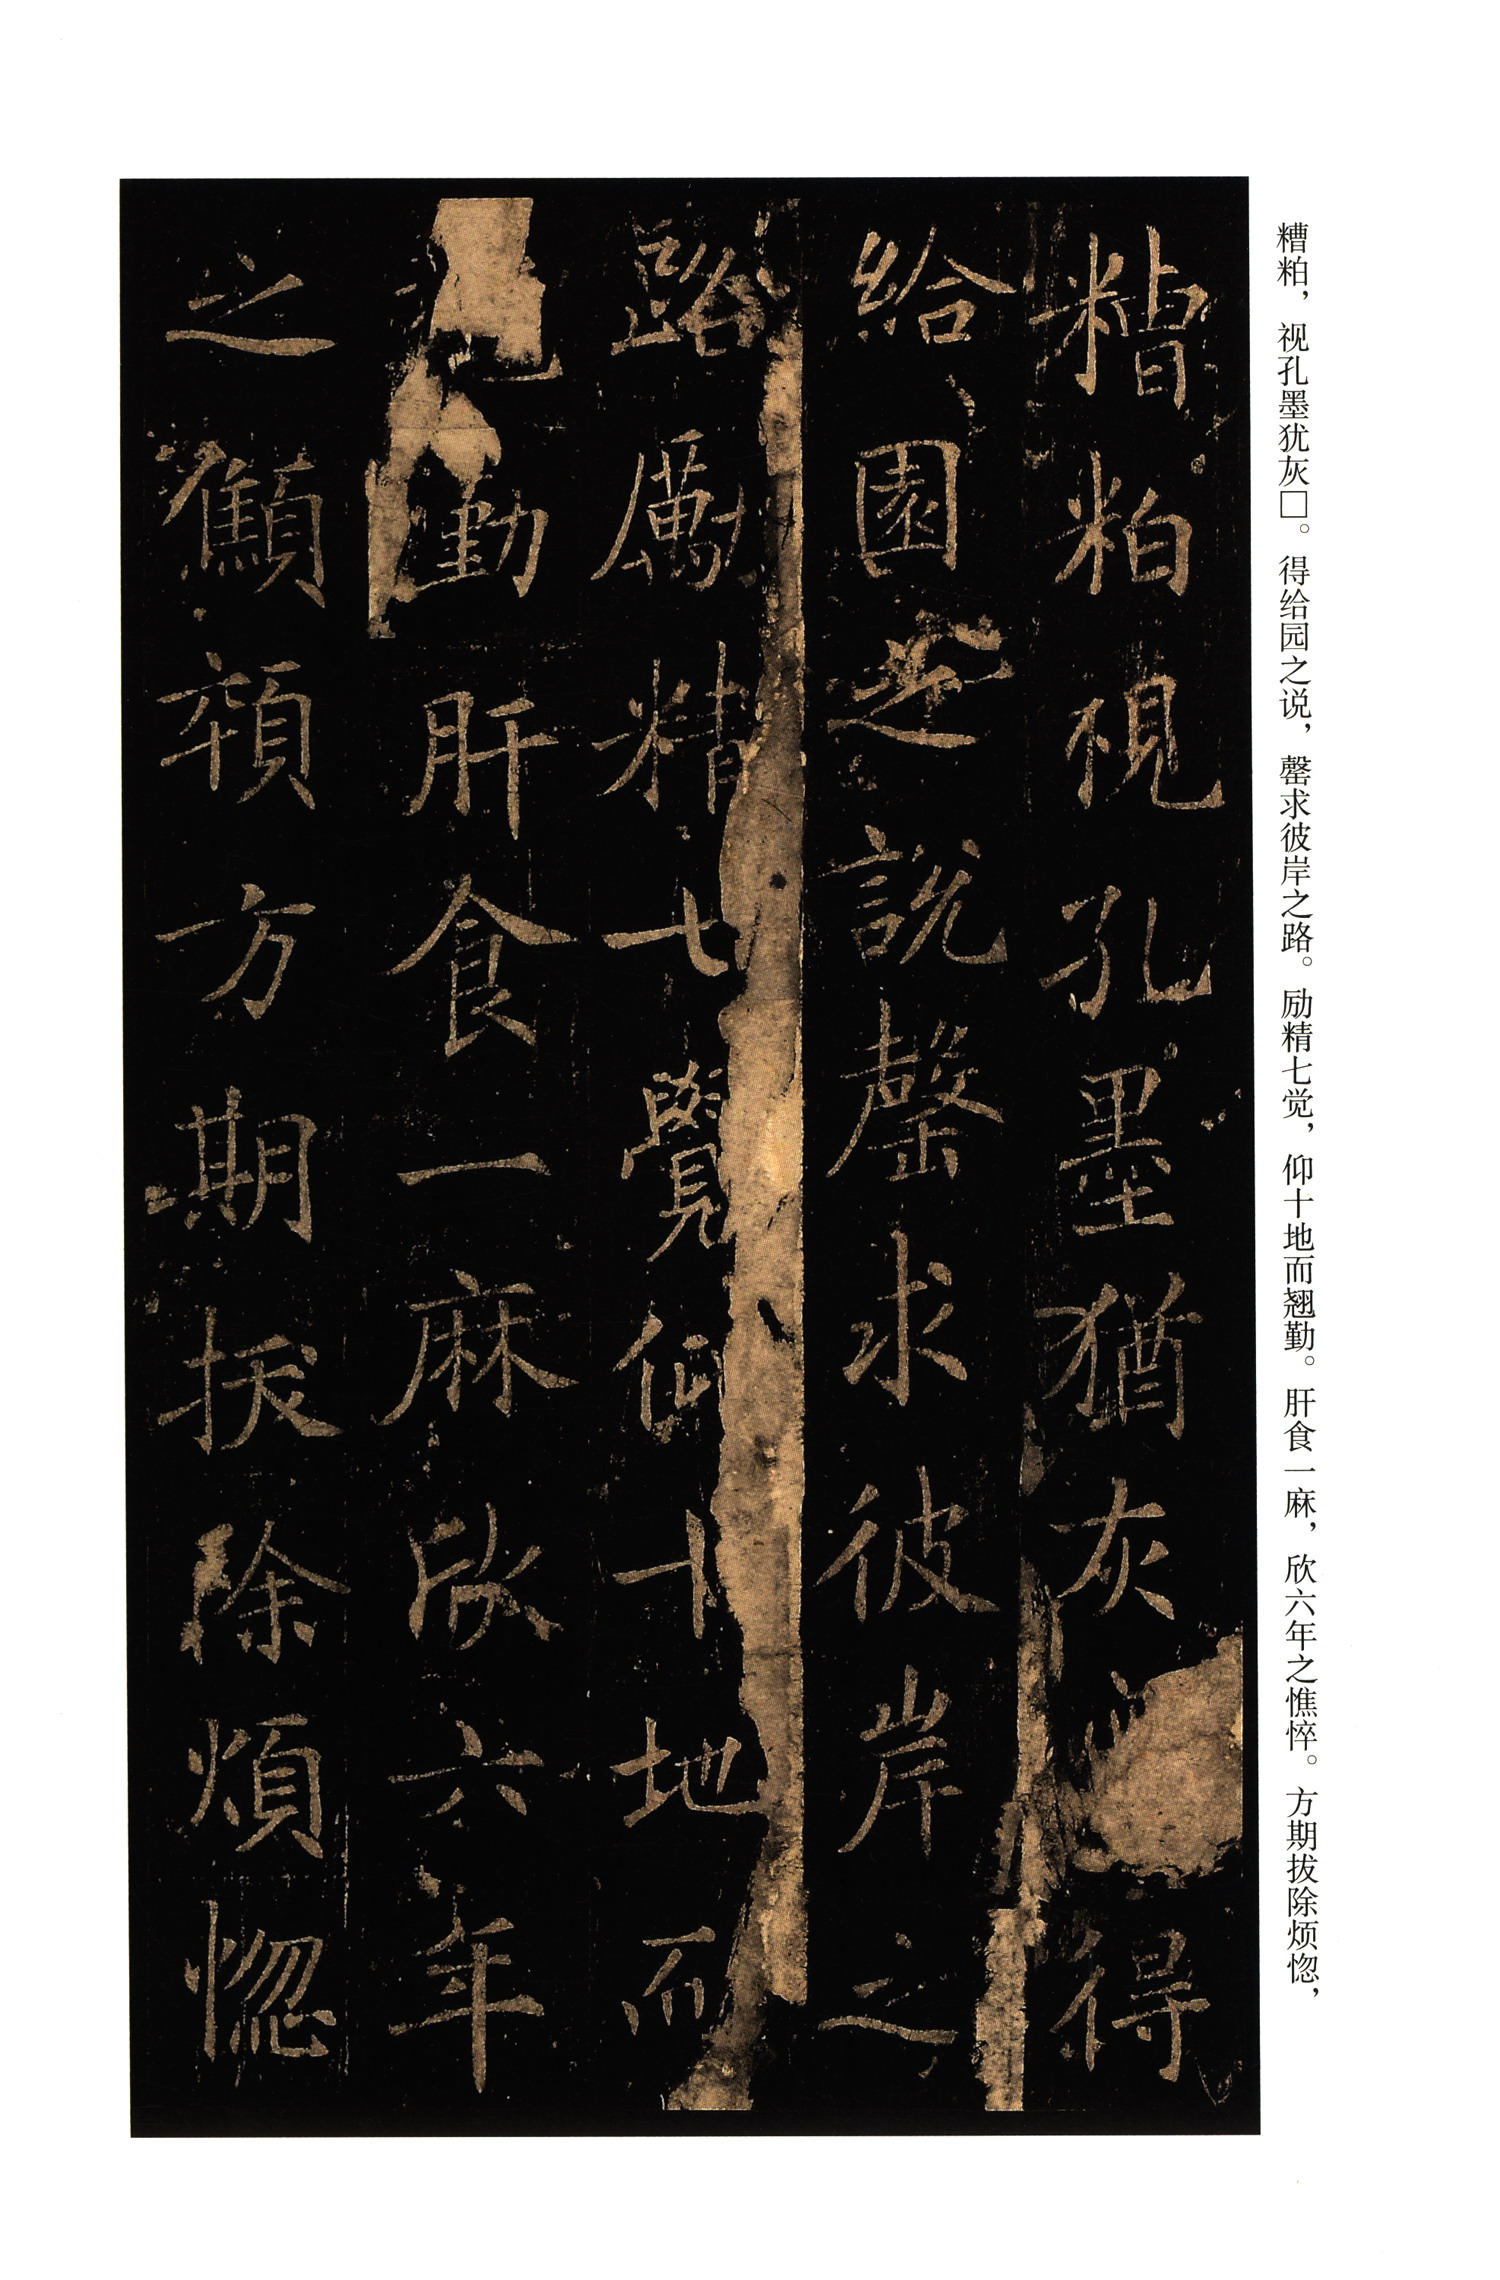 糟粕，视孔墨犹灰□。得给园之说，罄求彼岸之路。励精七觉，仰十地而翘勤。肝食一麻，欣六年之憔悴。方期拔除烦惚，
糟粕視孔墨猶灰得
給園之說罄求彼岸之
路厲精七覺仰十地而
勤肝食一麻欣六年
之顦顇方期拔除煩惚